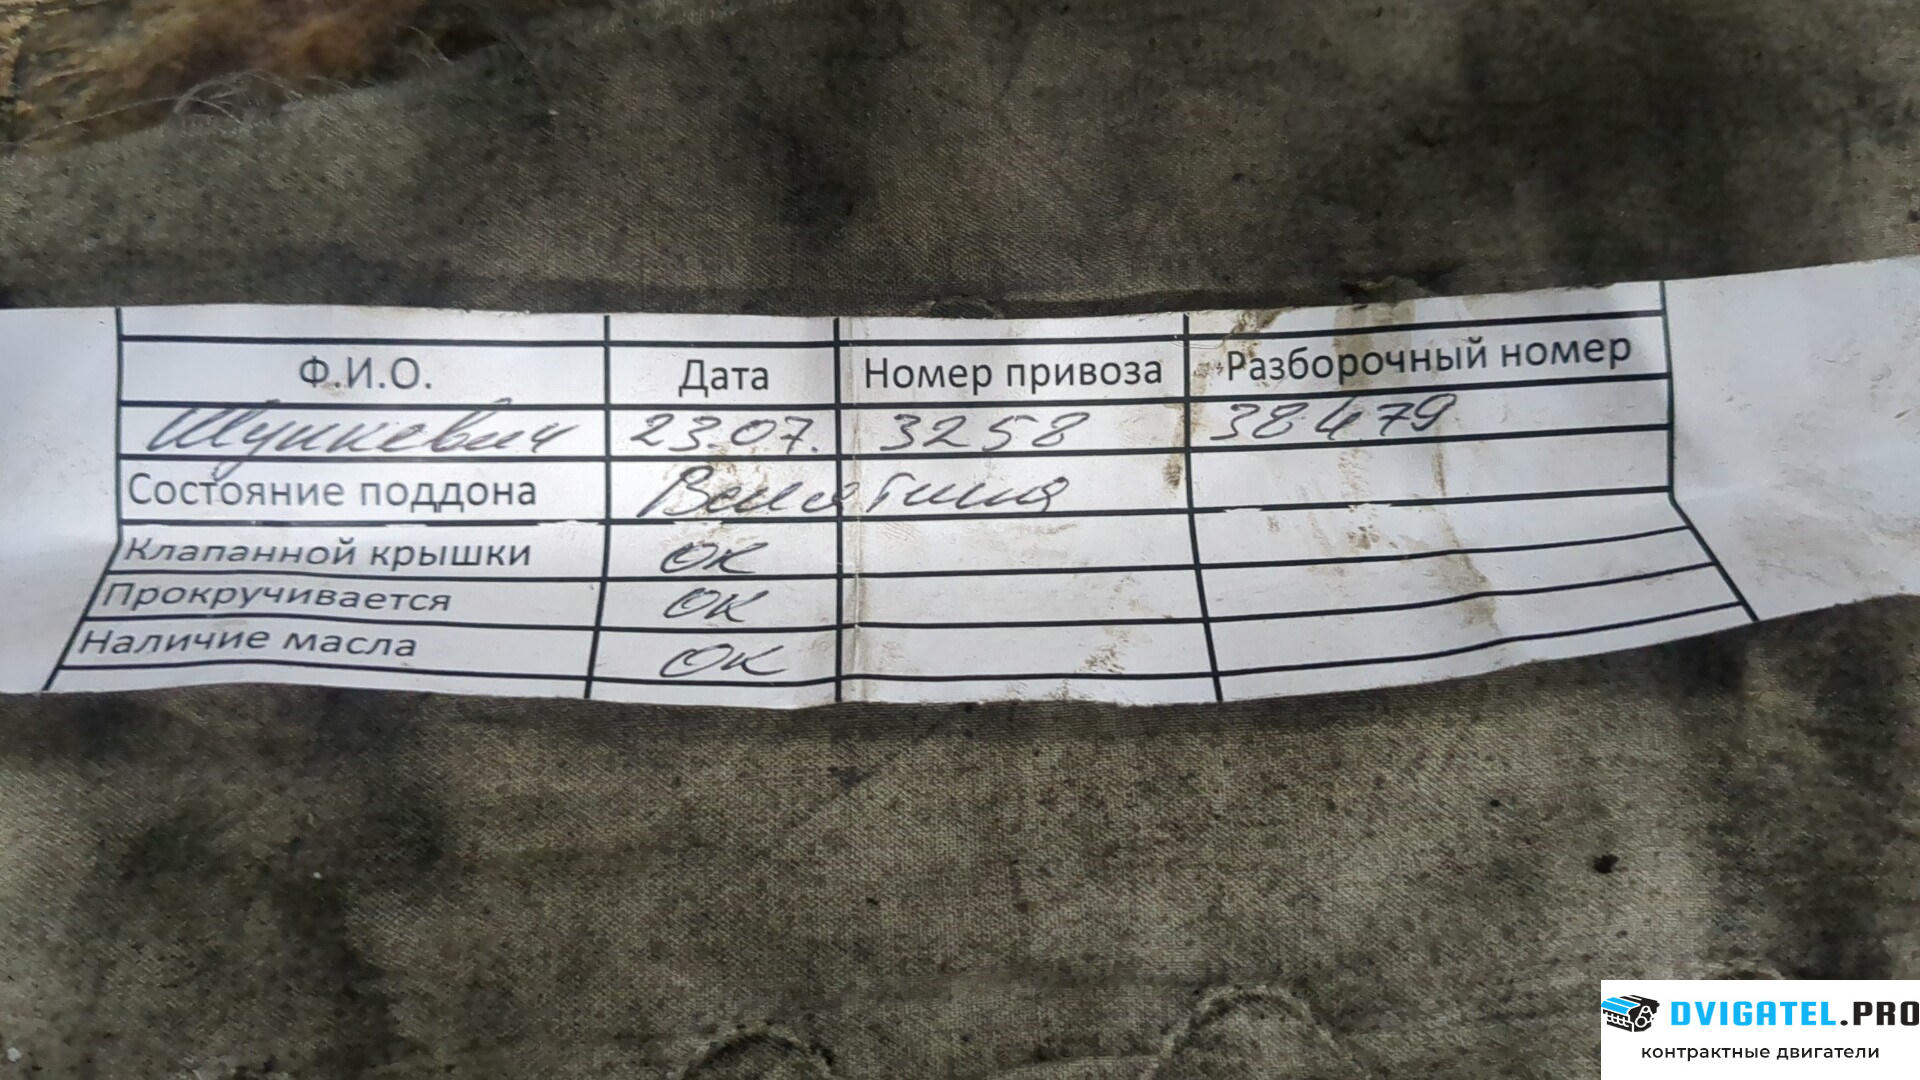 Ф.И.О. Дата Номер привоза Разборочный номер
Шункевич 23.07. 3258 38479
Состояние поддона
Клапанной крышки ОК
Прокручивается ОК
Наличие масла ОК
DVIGATEL.PRO
контрактные двигатели